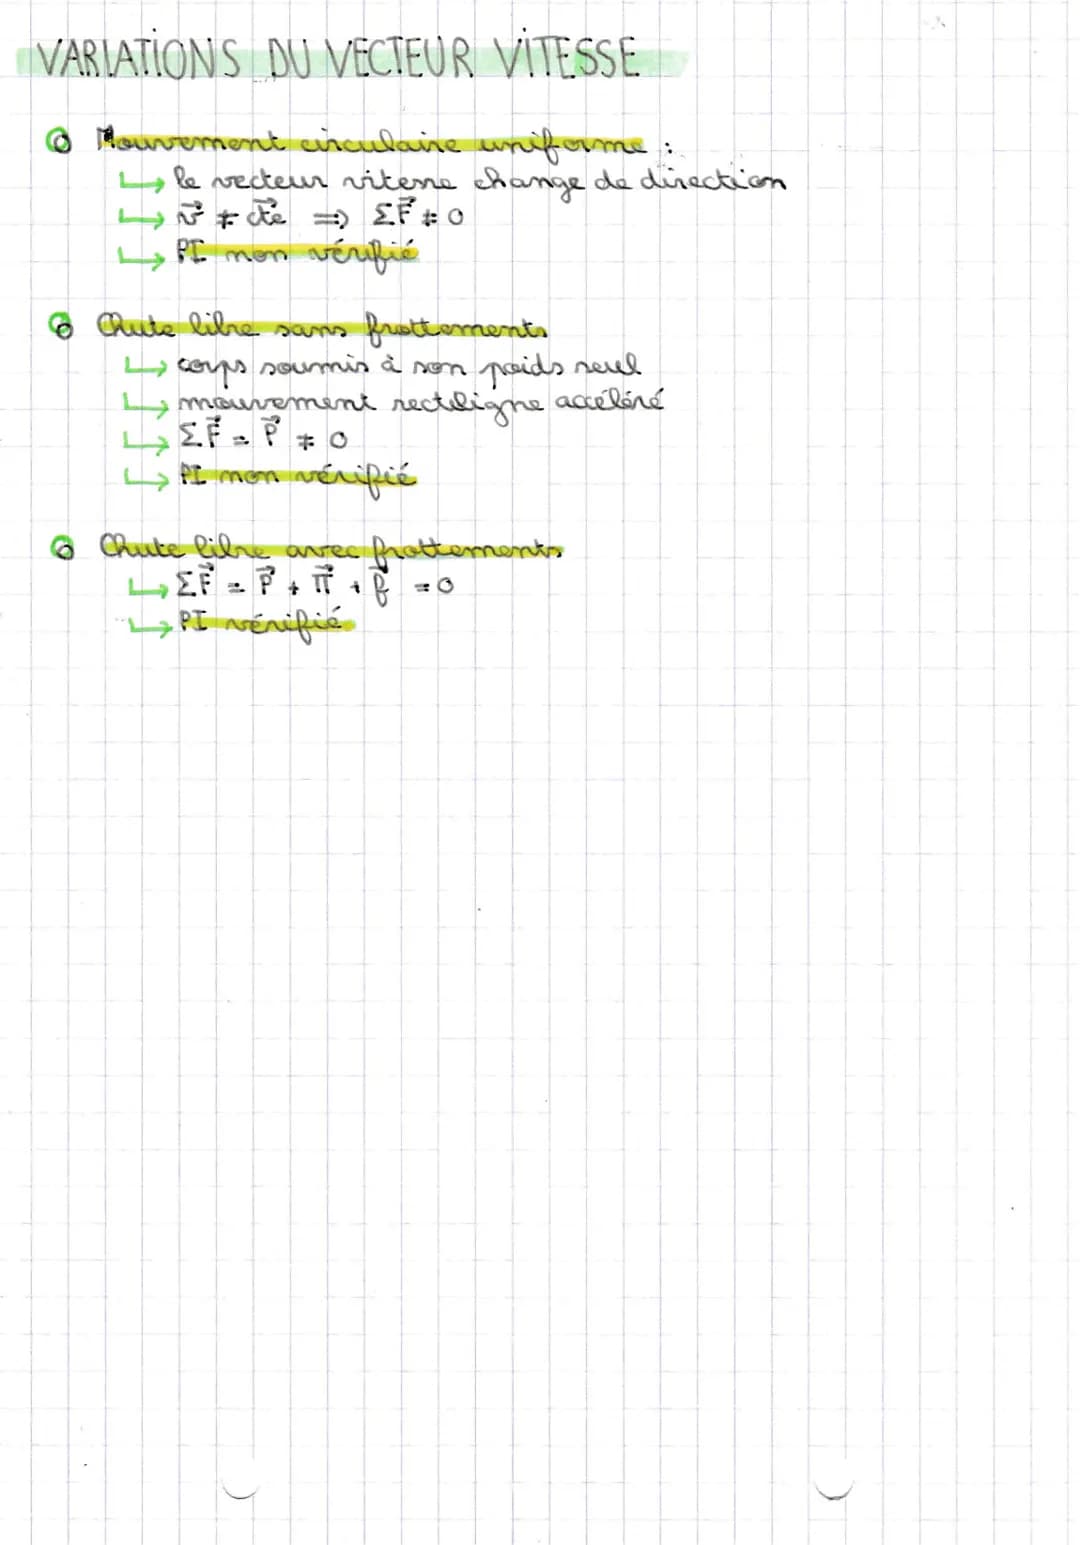 VARIATIONS DU VECTEUR VITESSE
Mouvement circulaire uniforme :
↳ le vecteur vitesse change de direction
↳ v⃗ ≠ cte⃗ ⇒ ΣF⃗ ≠ 0
↳ PI non vérifié
Chute libre sans frottements
↳ corps soumis à son poids seul
↳ mouvement rectiligne accéléré
↳ ΣF⃗ = P⃗ ≠ 0
↳ PI non vérifié
Chute libre avec frottements
↳ ΣF⃗ = P⃗ + π⃗ + f⃗ = 0
↳ PI vérifié